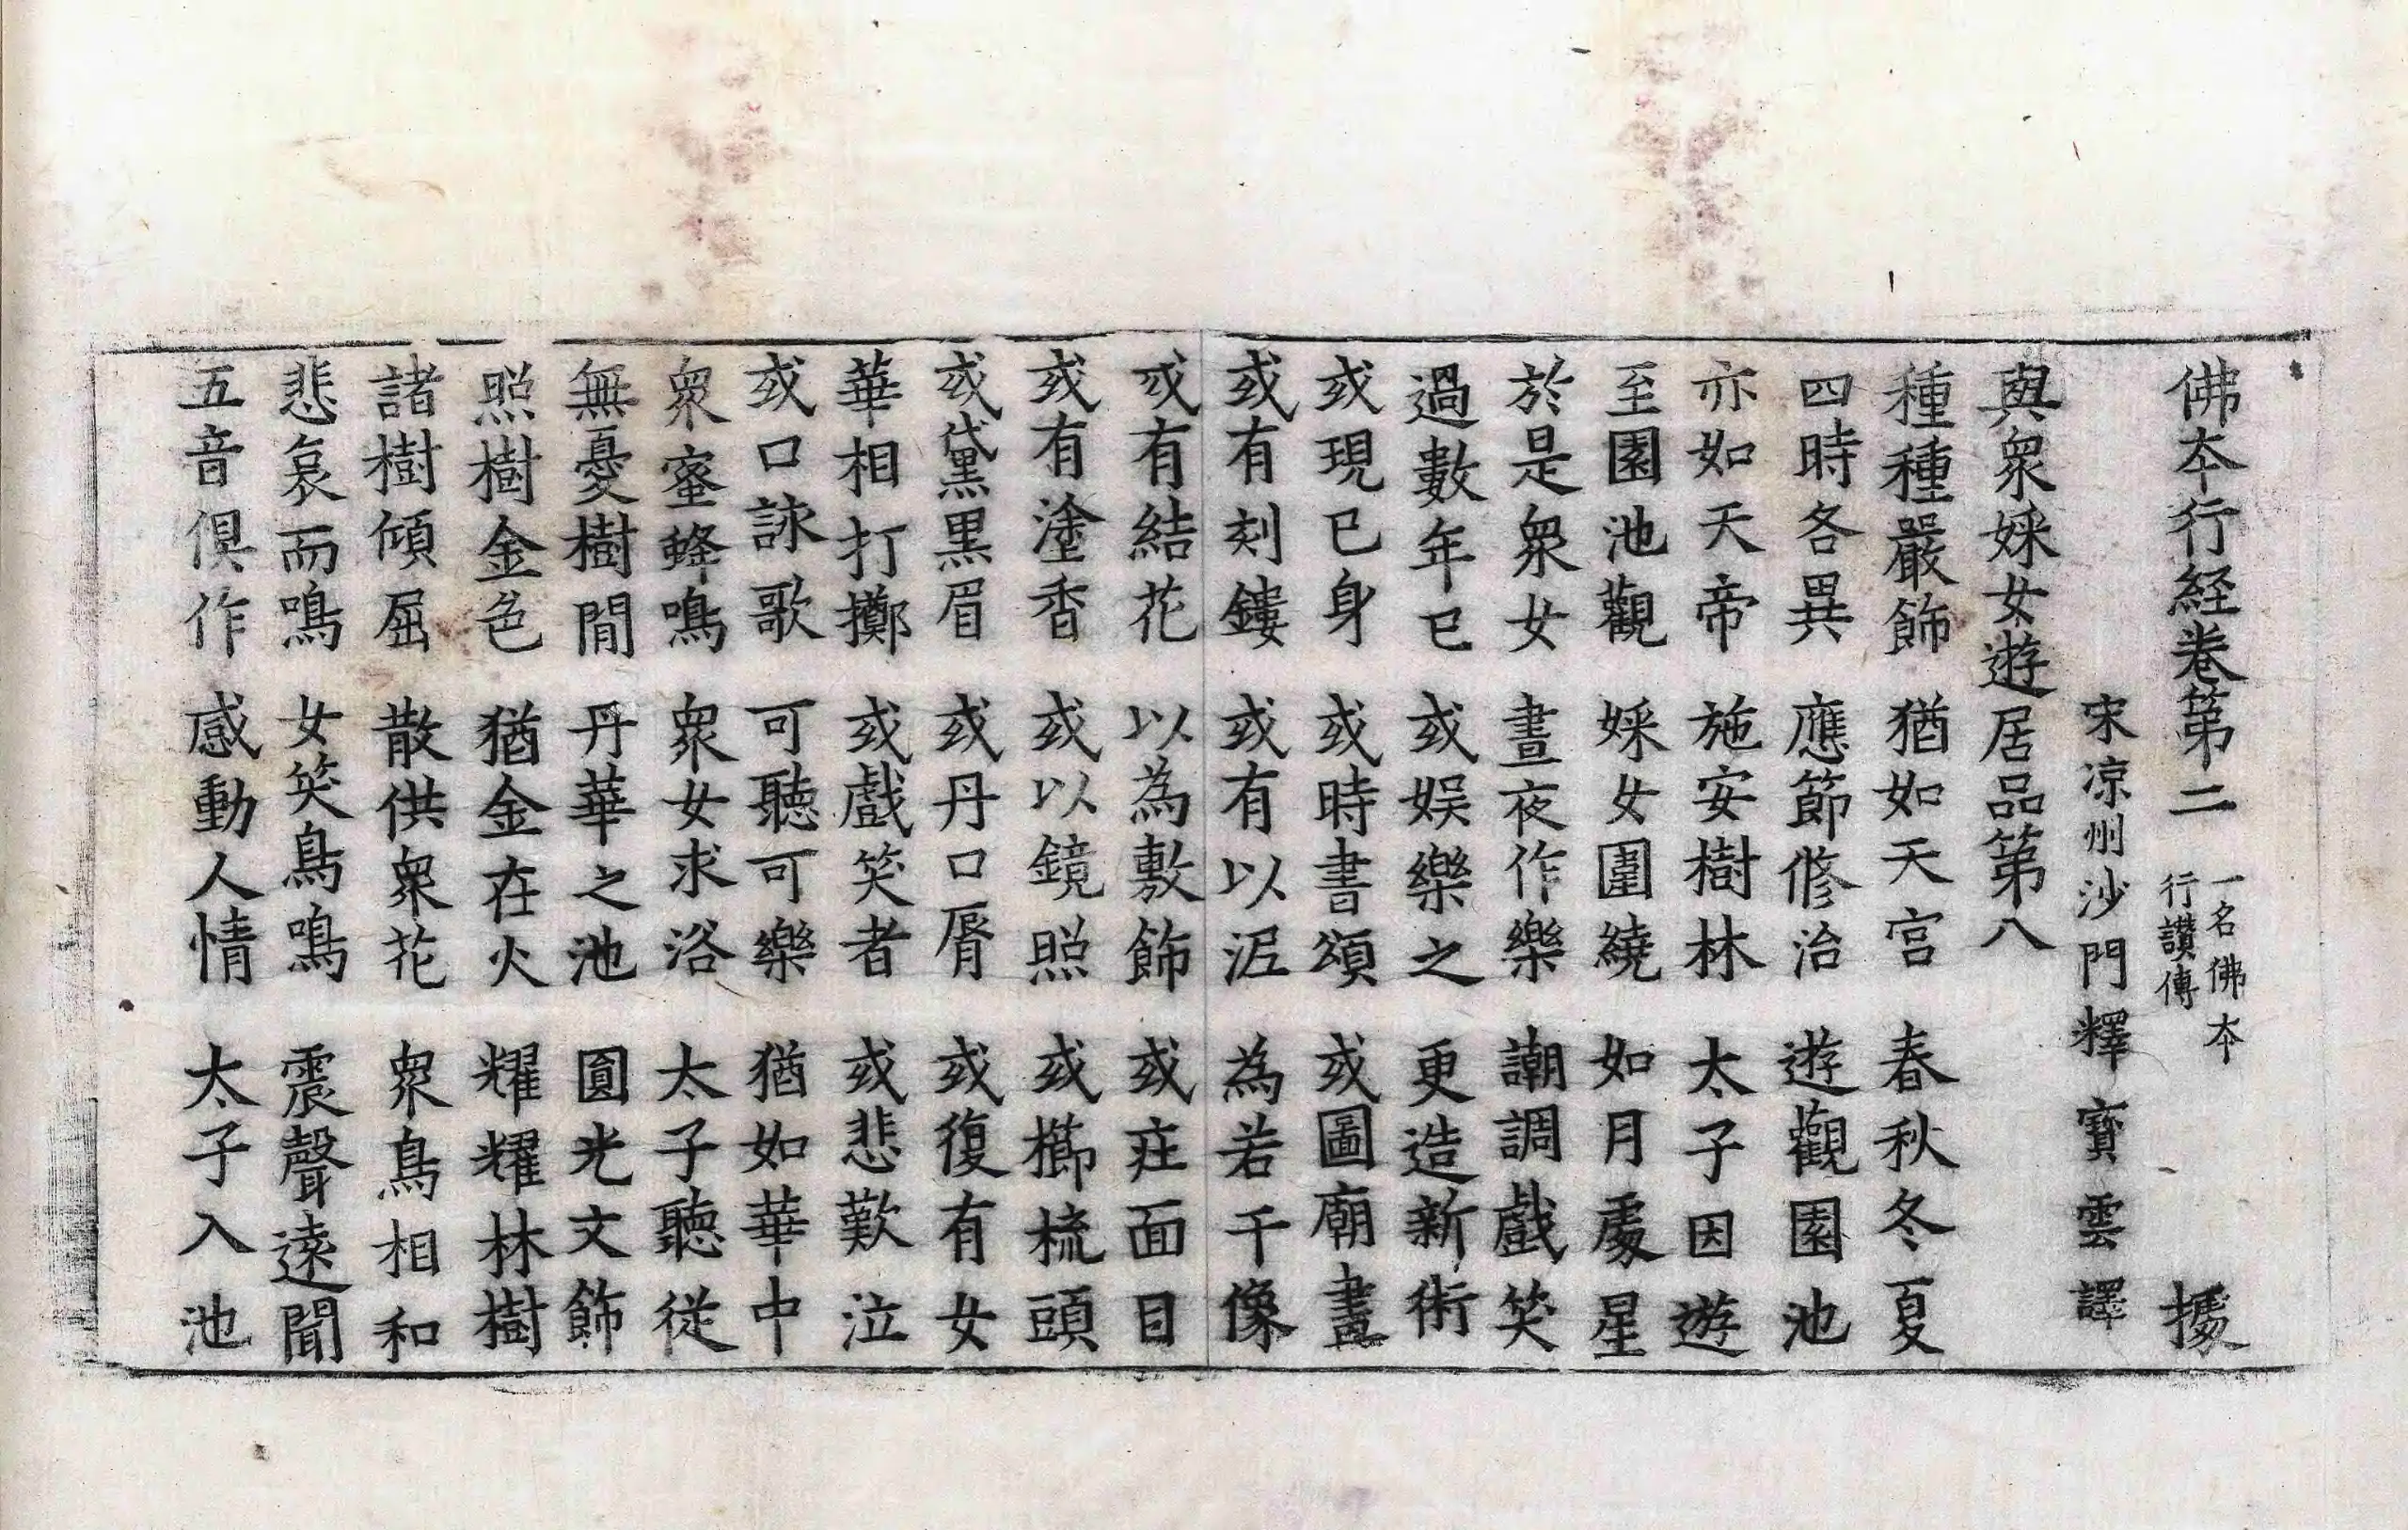 佛本行經卷第二 一名佛本行讚傳 據
宋凉州沙門釋寶雲譯
與衆婇女遊居品第八
種種嚴飾 猶如天宮 春秋冬夏
四時各異 應節修治 遊觀園池
亦如天帝 施安樹林 太子因遊
至園池觀 婇女圍繞 如月處星
於是衆女 晝夜作樂 調調戲笑
過數年已 或娛樂之 更造新術
或現已身 或時書頌 或圖廟畫
或有刻鏤 或有以泥 為若干像
或有結花 以為敷飾 或莊面目
或有塗香 或以鏡照 或櫛梳頭
或黛黑眉 或丹口脣 或復有女
華相打擲 或戲笑者 或悲歎泣
或口詠歌 可聽可樂 猶如華中
衆蜜蜂鳴 衆女求浴 太子聽從
無憂樹間 丹華之池 圓光文飾
照樹金色 猶金在火 耀耀林樹
諸樹傾屈 散供衆花 衆鳥相和
悲哀而鳴 女笑鳥鳴 震聲遠聞
五音俱作 感動人情 太子入池